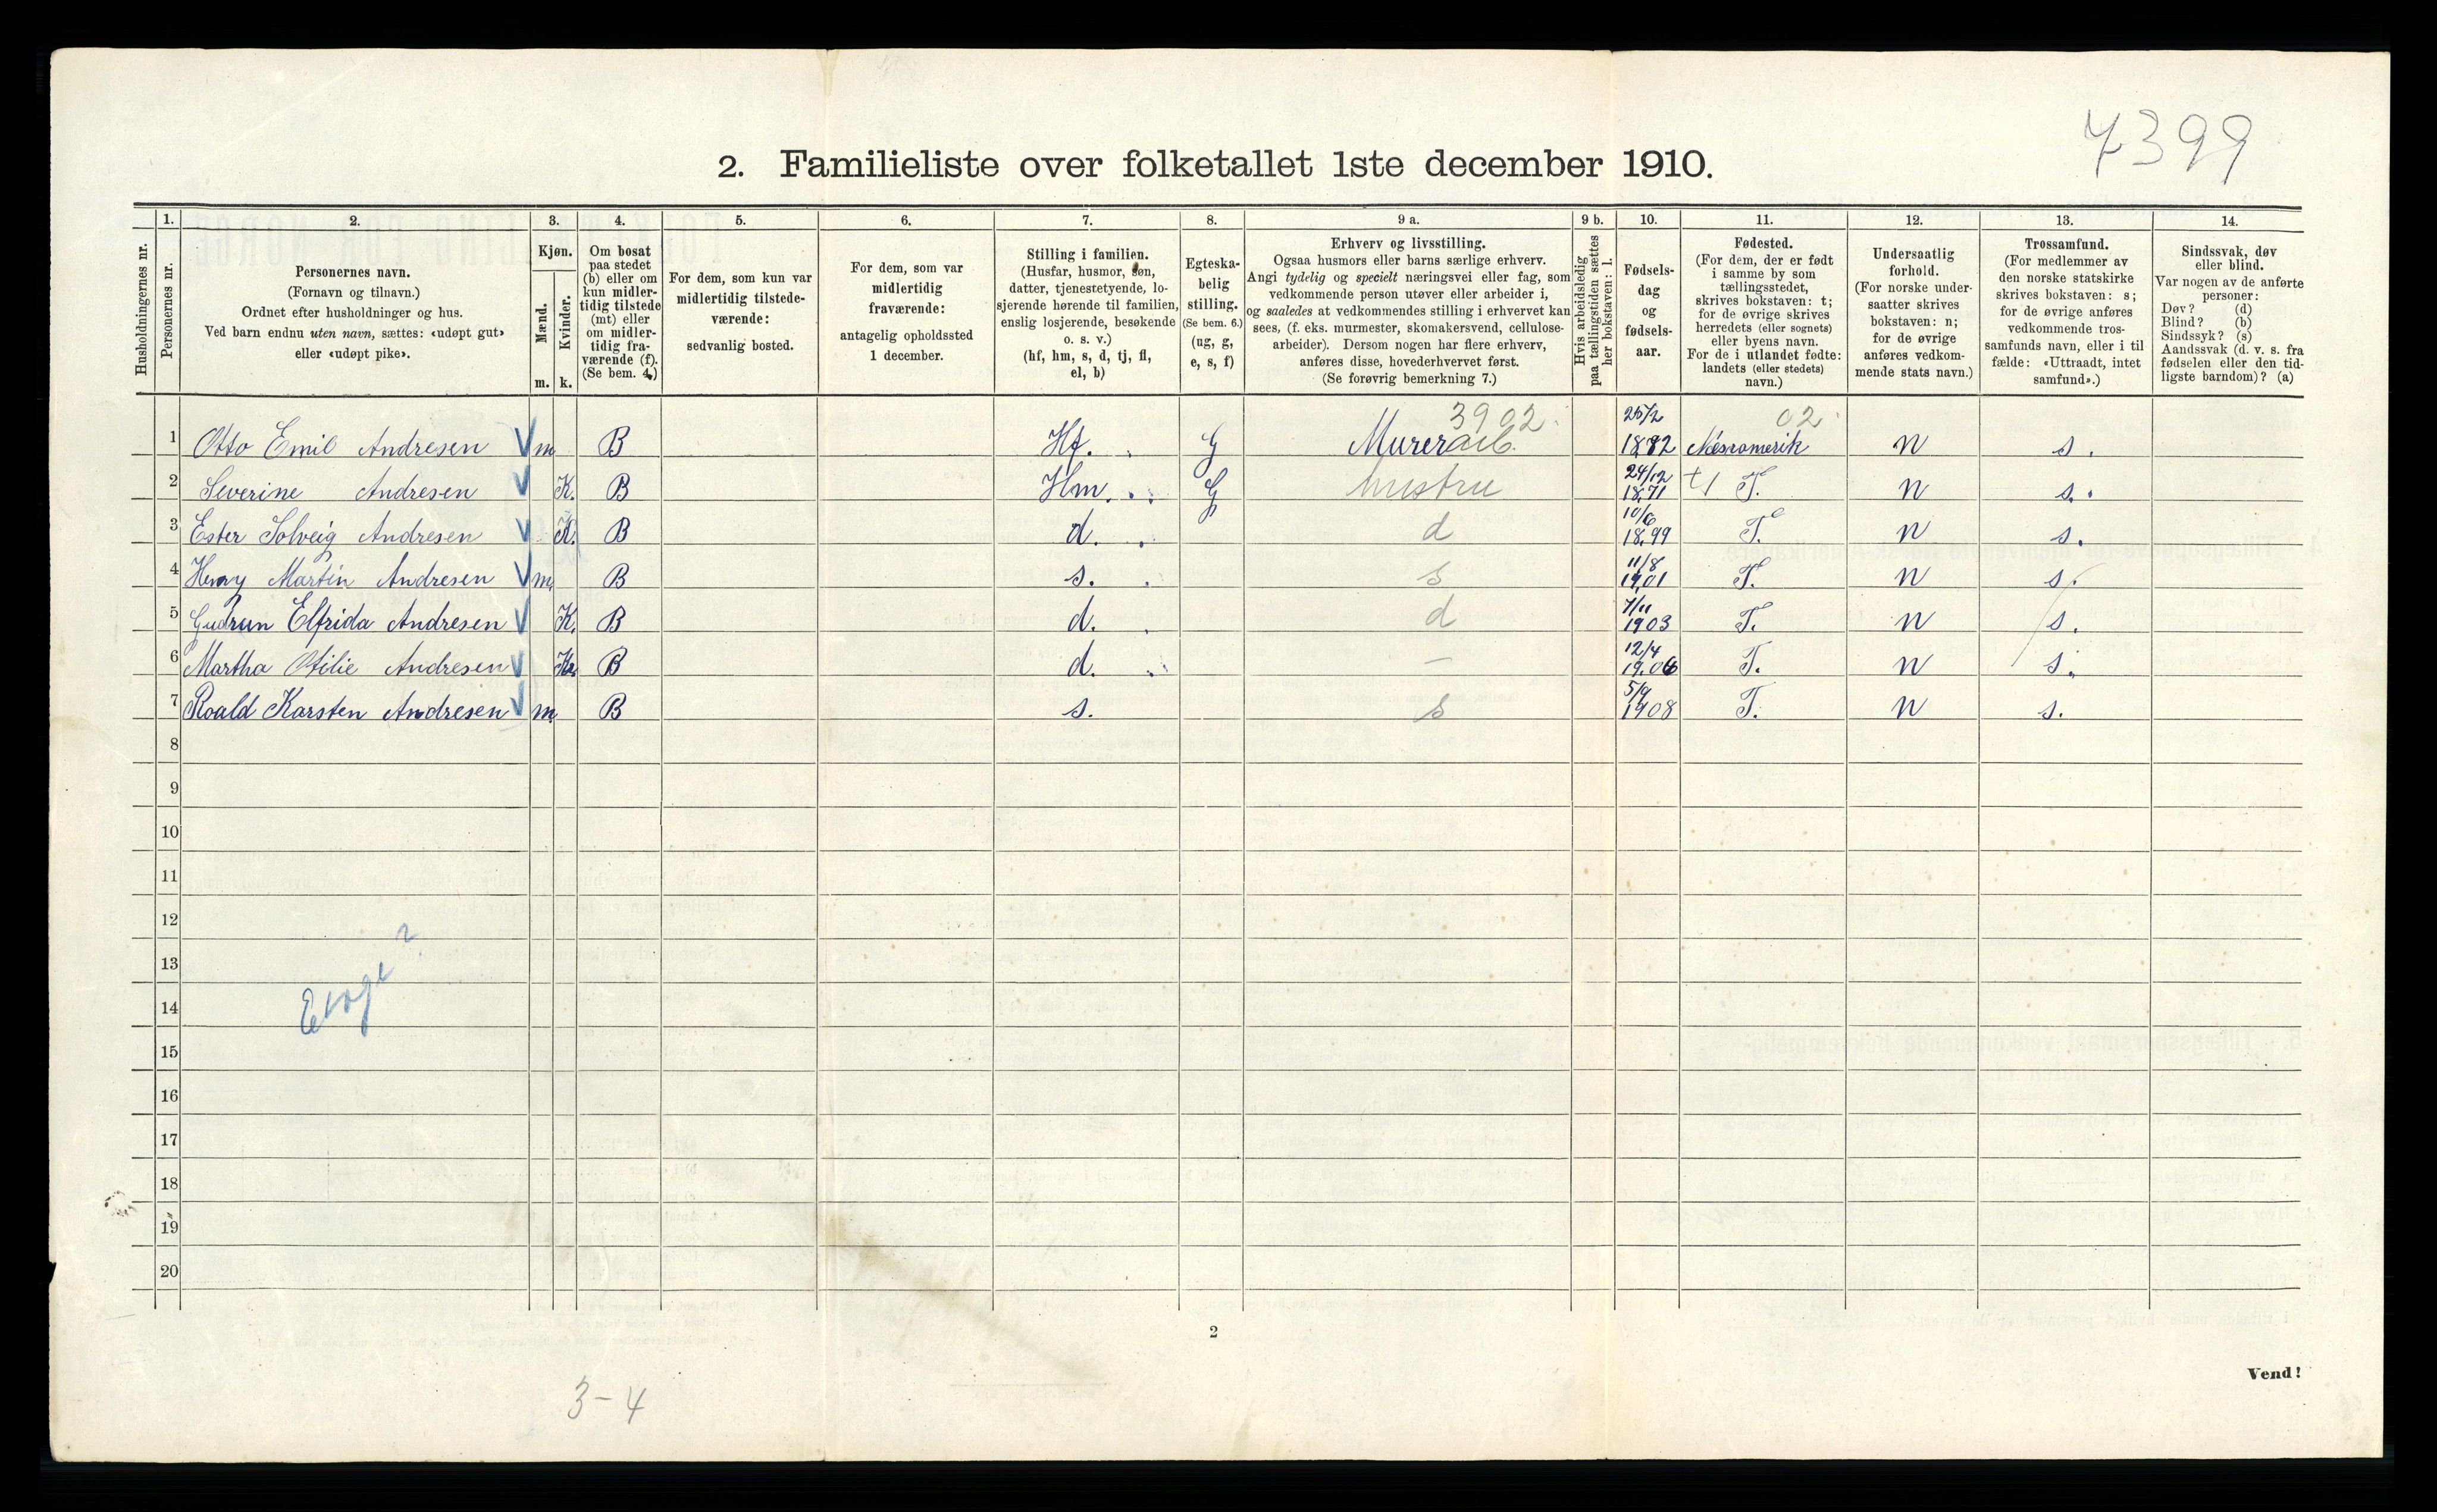 4399
2. Familieliste over folketallet 1ste december 1910.
1. 2. 3. 4. 5. 6. 7. 8. 9 a. 9 b. 10. 11. 12. 13. 14.
Husholdningernes nr.
Personernes nr.
Personernes navn.
(Fornavn og tilnavn.)
Ordnet efter husholdninger og hus.
Ved barn endnu uten navn, sættes: «udøpt gut»
eller «udøpt pike».
Kjøn.
Mænd.
Kvinder.
m. k.
Om bosat
paa stedet
(b) eller om
kun midler-
tidig tilstede
(mt) eller
om midler-
tidig fra-
værende (f).
(Se bem. 4.)
For dem, som kun var
midlertidig tilstede-
værende:
sedvanlig bosted.
For dem, som var
midlertidig
fraværende:
antagelig opholdssted
1 december.
Stilling i familien.
(Husfar, husmor, søn,
datter, tjenestetyende, lo-
sjerende hørende til familien,
enslig losjerende, besøkende
o. s. v.)
(hf, hm, s, d, tj, fl,
el, b)
Egteska-
belig
stilling.
(Se bem. 6.)
(ug, g,
e, s, f)
Erhverv og livsstilling.
Ogsaa husmors eller barns særlige erhverv.
Angi tydelig og specielt næringsvei eller fag, som
vedkommende person utøver eller arbeider i,
og saaledes at vedkommendes stilling i erhvervet kan
sees, (f. eks. murmester, skomakersvend, cellulose-
arbeider). Dersom nogen har flere erhverv,
anføres disse, hovederhvervet først.
(Se forøvrig bemerkning 7.)
Hvis arbeidsledig
paa tællingstiden sættes
her bokstaven: l.
Fødsels-
dag
og
fødsels-
aar.
Fødested.
(For dem, der er født
i samme by som
tællingsstedet,
skrives bokstaven: t;
for de øvrige skrives
herredets (eller sognets)
eller byens navn.
For de i utlandet fødte:
landets (eller stedets)
navn.)
Undersaatlig
forhold.
(For norske under-
saatter skrives
bokstaven: n;
for de øvrige
anføres vedkom-
mende stats navn.)
Trossamfund.
(For medlemmer av
den norske statskirke
skrives bokstaven: s;
for de øvrige anføres
vedkommende tros-
samfunds navn, eller i til
fælde: «Uttraadt, intet
samfund».)
Sindssvak, døv
eller blind.
Var nogen av de anførte
personer:
Døv? (d)
Blind? (b)
Sindssyk? (s)
Aandssvak (d. v. s. fra
fødselen eller den tid-
ligste barndom)? (a)
3902 25/2 02
1 Otto Emil Andresen V m B Hf. G Murerarb. 1872 n s.
24/12
2 Severine Andresen V K. B Hm. G hustru 1871 T. n s.
10/6
3 Ester Solveig Andresen V K. B d. d 1899 T. n s.
11/8
4 Henry Martin Andresen V m B s. s 1901 T. n s.
7/11
5 Gudrun Elfrida Andresen V K. B d. d 1903 T. n s.
12/4
6 Martha Otilie Andresen V K B d. — 1906 T. n s.
5/9
7 Roald Karsten Andresen V m B s. s 1908 T. n s.
8
9
10
11
12
13
14
15
16
17
18
19
20
2
Vend!
3-4